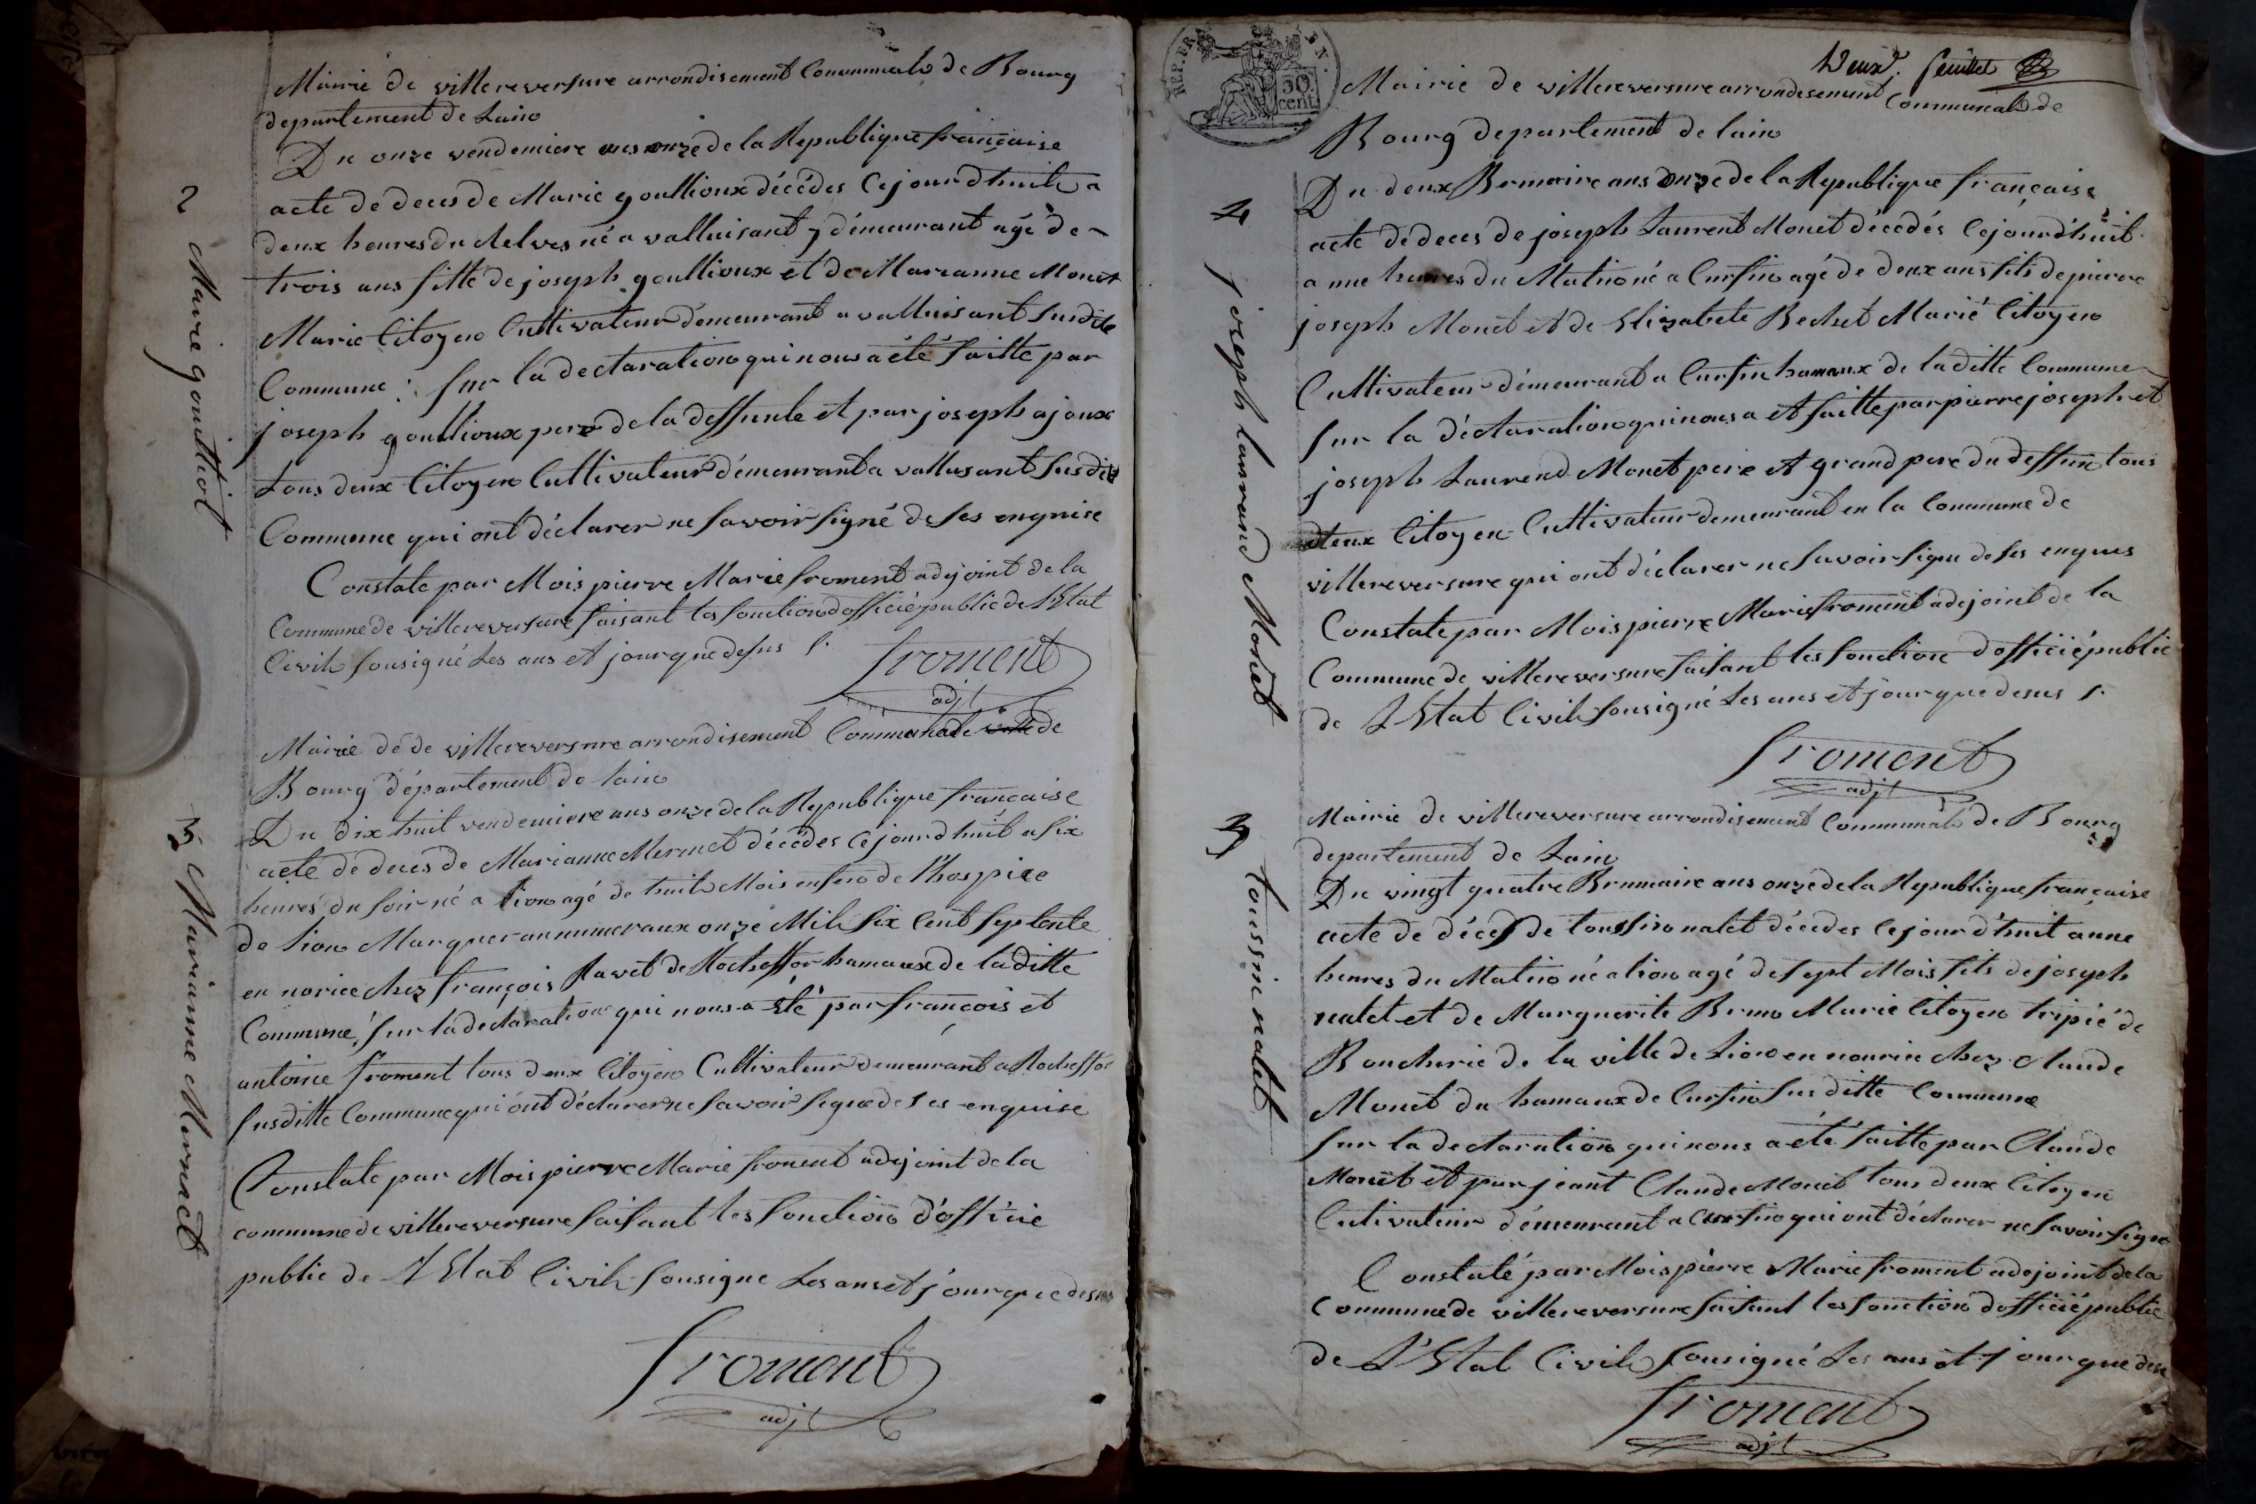 Mairie de villereversure arrondisement Communale de Bourg
departement de Lain
Du onze vendemiere ans onze de la Republique française
2
Marie goulliot
acte de deces de Marie goullioux décédes cejourdhuit a
deux heures du né a valluisant y démeurant agé de
trois ans fille de joseph goullioux et de Marianne Monet
Marie Citoyen Cultivateur démeurant a valluisant susdite
Commune : sur la declaration qui nous a été faitte par
joseph goullioux pere de la deffunte et par joseph ajoux
tous deux Citoyen Cultivateur démeurant a vallusant susdite
Commune qui ont déclarer ne savoir signé de ses enquise
Constate par Mois pierre Marie froment adejoint de la
Commune de villereversure faisant les fonction dofficié public de LEtat
Civil sousigné Les ans et jour que desus
froment
adjt
Mairie dé de villereversure arrondisement Communale de
Bourg département de Lain
3
Marianne Mermet
Du dix huit vendemiere ans onze de la Republique francaise
acte de deces de Marianne Mermet décédes cejourdhuit a six
heures du soir né a Lion agé de huit Mois enfens de l'hospice
de Lion Marquer au numeraux onze Mil six Cent septente
en norice chez françois Ravet de Rocheffor hamaux de la ditte
Commune, sur la declaration qui nous a été par françois et
antoine froment tous deux Citoyen Cultivateur demeurant a Rocheffor
susditte Commune qui ont déclarer ne savoir signe de ses enquise
Constate par Mois pierre Marie froment adejoint de la
commune de villereversure faisant les fonction d'officie
public de L'Etat Civil sousigne Les ans et jour que desus
froment
adjt
REP. FRA
50
cent
Deux. feuillet
Mairie de villereversure arrondisement Communale de
Bourg departement de lain
4
joseph laurand Monet
Du deux Brumaire ans onze de la Republique française
acte dé deces de joseph Laurent Monet décédés cejourdhuit
a une heures du Matin né a Cursin agé de deux ans fils de pierre
joseph Monet et de Elizabete Bechet Marié Citoyen
Cultivateur démeurant a Cursin hamaux de laditte Commune
sur la déclaration qui nous a et faitte par pierre joseph et
joseph Laurend Monet pere et grand pere du deffun tous
deux Citoyen Cultivateur demeurant en la Commune de
villereversure qui ont déclarer ne savoir signe de ses enques
Constate par Mois pierre Marie froment adejoint de la
Commune de villereversure faisant les fonction dofficié public
de LEtat Civil sousigné Les ans et jour que desus
froment
adjt
Mairie de villereversure arrondisement Communale de Bourg
departement de Lain
5
toussin nalet
Du vingt quatre Brumaire ans onze de la Republique française
acte de décès de toussin nalet décédes cejourd'huit a une
heures du Matin né a Lion agé de sept Mois fils de joseph
nalet et de Marguerite Brmo Marie Citoyen tripié de
Boucherie de la ville de Lion en nourice chez Claude
Monet du hamaux de Cursin susditte Commune
sur la declaration qui nous a été faitte par Claude
Monet et par jeant Claude Monet tous deux Citoyen
Cultivateur démeurant a Cursin qui ont déclarer ne savoir signe
Constaté par Mois pierre Marie froment adejoint de la
Commune de villereversure faisant les fonction dofficié public
de L'Etat Civil sousigné Les ans et jour que desu
froment
adjt